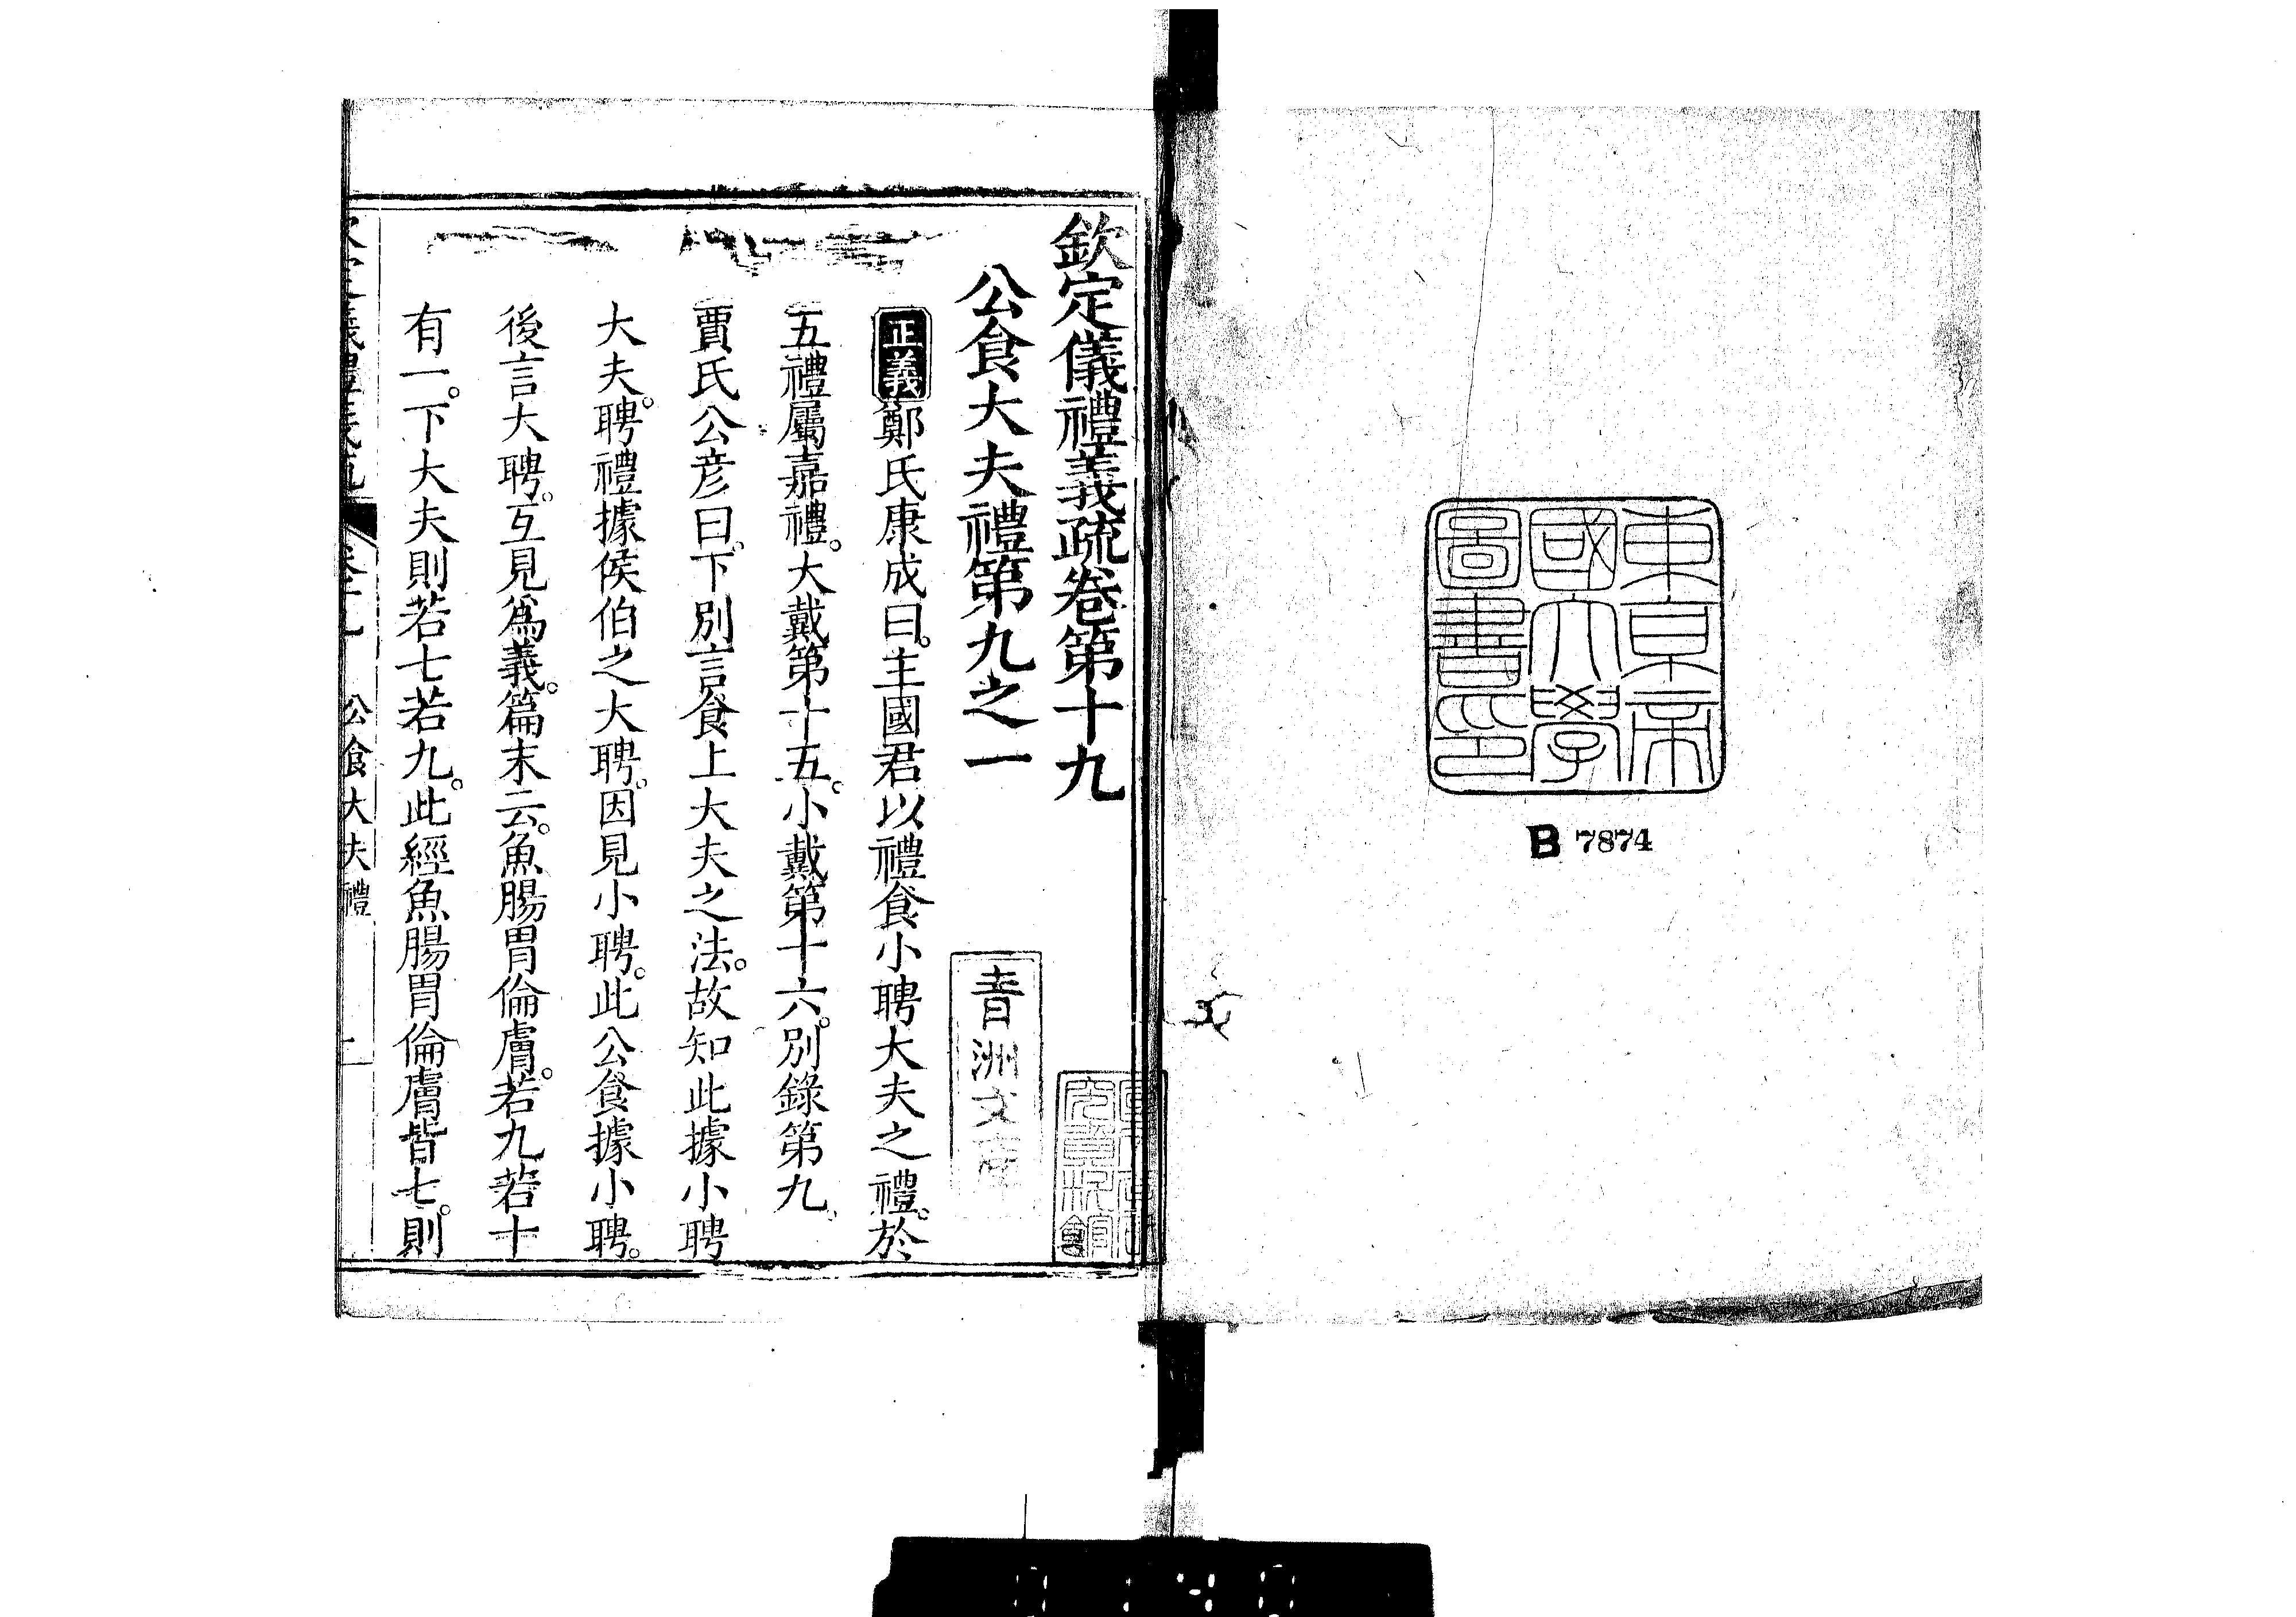 東京帝
國大學
圖書印
B 7874
欽定儀禮義疏卷第十九
公食大夫禮第九之一
青洲文庫
正義鄭氏康成曰。主國君以禮食小聘大夫之禮。於
五禮屬嘉禮。大戴第十五。小戴第十六。別錄第九
賈氏公彦曰。下別言食上大夫之法。故知此據小聘
大夫。聘禮據侯伯之大聘。因見小聘。此公食據小聘。
後言大聘。互見爲義。篇末云。魚腸胃倫膚。若九若十
有一。下大夫則若七若九。此經魚腸胃倫膚皆七。則
公食大夫禮